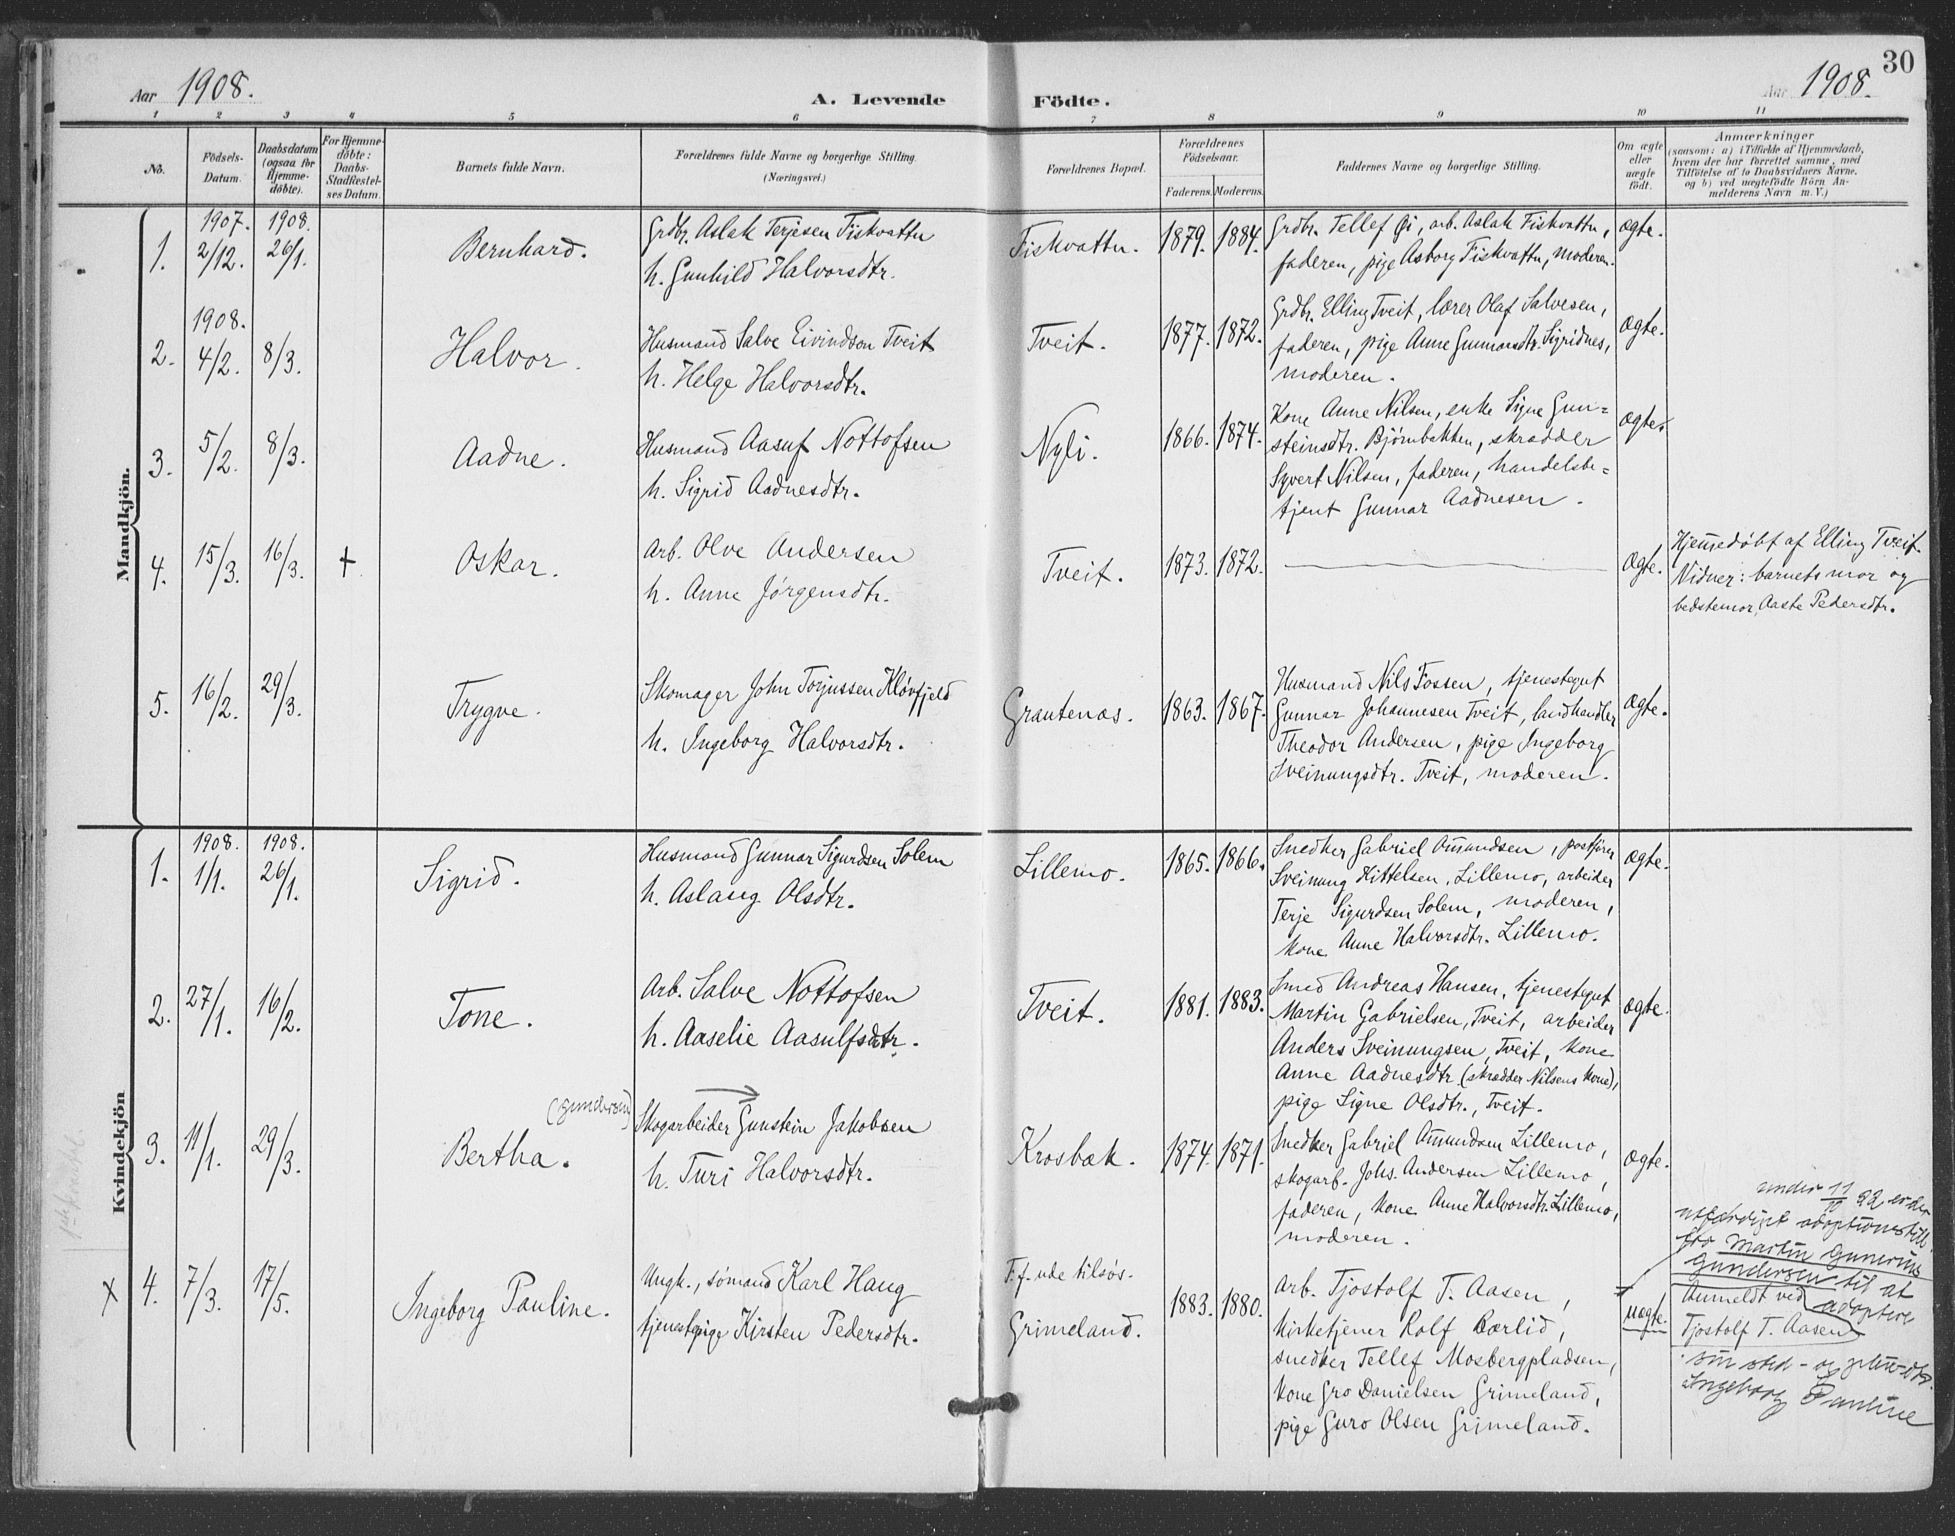 Aar 1908.
A. Levende Födte.
Aar 1908.
30
1 2 3 4 5 6 7 8 9 10 11
No.
Födsels-Datum.
Daabsdatum (ogsaa for Hjemme-döbte).
For Hjemme-döbte: Daabs-Stadfæstel-ses Datum.
Barnets fulde Navn.
Forældrenes fulde Navne og borgerlige Stilling.
(Næringsvei.)
Forældrenes Bopæl.
Forældrenes Födselsaar.
Faderens. Moderens.
Faddernes Navne og borgerlige Stilling.
Om ægte eller uægte födt.
Anmærkninger
(saasom: a) i Tilfælde af Hjemmedaab,
hvem der har forrettet samme, med
Tilföielse af to Daabsvidners Navne,
og b) ved uægtefödte Börn An-
melderens Navn m. V.)
Mandkjön.
1. 1907. 2/12. 1908. 26/1. Bernhard.
Grdbr. Aslak Terjesen Fiskvattn
h. Gunhild Halvorsdtr.
Fiskvattn. 1879. 1884.
Grdbr. Tellef Øi, arb. Aslak Fiskvattn,
faderen, pige Asborg Fiskvattn, moderen.
Ægte.
2. 1908. 4/2. 8/3. Halvor.
Husmand Salve Eivindson Tveit
h. Helge Halvorsdtr.
Tveit. 1877. 1872.
Grdbr. Elling Tveit, lærer Olaf Salvesen,
faderen, pige Anne Gunnarsdtr. Sigridnes,
moderen.
Ægte.
3. 5/2. 8/3. Aadne.
Husmand Aasuf Nottofsen
h. Sigrid Aadnesdtr.
Nyli. 1866. 1874.
Kone Anne Nilsen, enke Signe Gun=
steinsdtr. Bjørnbakken, skrædder
Syvert Nilsen, faderen, handelsbe=
tjent Gunnar Aadnesen.
Ægte.
4. 15/3. 16/3. + Oskar.
Arb. Olve Andersen
h. Anne Jørgensdtr.
Tveit. 1873. 1872.
Ægte.
Hjemedøbt af Elling Tveit.
Vidner: barnets mor og
bedstemor Aaste Pedersdtr.
5. 16/2. 29/3. Trygve.
Skomager John Torjussen Kløvfjeld
h. Ingeborg Halvorsdtr.
Grautenæs. 1863. 1867.
Husmand Nils Fossen, tjenestegut
Gunnar Johannesen Tveit, landhandler
Theodor Andersen, pige Ingeborg
Sveinungsdtr. Tveit, moderen.
Ægte.
Kvindekjön
1. 1908. 1/1. 1908. 26/1. Sigrid.
Husmand Gunnar Sigurdsen Solem
h. Aslaug Olsdtr.
Lillemo. 1865. 1866.
Snedker Gabriel Amundsen, postfører
Sveinung Kittelsen, Lillemo, arbeider
Terje Sigurdsen Solem, moderen,
kone Anne Halvorsdtr. Lillemo.
Ægte.
2. 27/1. 16/2. Tone.
Arb. Salve Nottofsen
h. Aaselie Aasulfsdtr.
Tveit. 1881. 1883.
Smed Andreas Hansen, tjenestegut
Martin Gabrielsen, Tveit, arbeider
Anders Sveinungsen, Tveit, kone
Anne Aadnesdtr (skrædder Nilsens kone),
pige Signe Olsdtr., Tveit.
Ægte.
3. 11/1. 29/3. Bertha.
(Gundersen)
Skogarbeider Gunstein Jakobsen
h. Turi Halvorsdtr.
Krosbæk. 1874. 1871.
Snedker Gabriel Amundsen Lillemo,
skogarb. Johs. Andersen Lillemo,
faderen, kone Anne Halvorsdtr. Lillemo,
moderen.
Ægte.
x 4. 7/3. 17/5. Ingeborg Pauline.
Ungk., sømand Karl Haug
tjenestepige Kirsten Pedersdtr.
F. f. ude tilsøs.
Grimeland. 1883. 1880.
Arb. Tjostolf T. Aasen,
kirketjener Rolf Bærlid,
snedker Tellef Mosbergpladsen,
kone Gro Danielsen Grimeland,
pige Guro Olsen Grimeland.
Uægte.
under 11/10 22 er der
utfærdiget adoptionsbev.
for Martin Gunerius
Gundersen til at
adoptere
Anmeldt ved
Tjostolf T. Aasen
sin sted- og pleiedtr.
Ingeborg Pauline